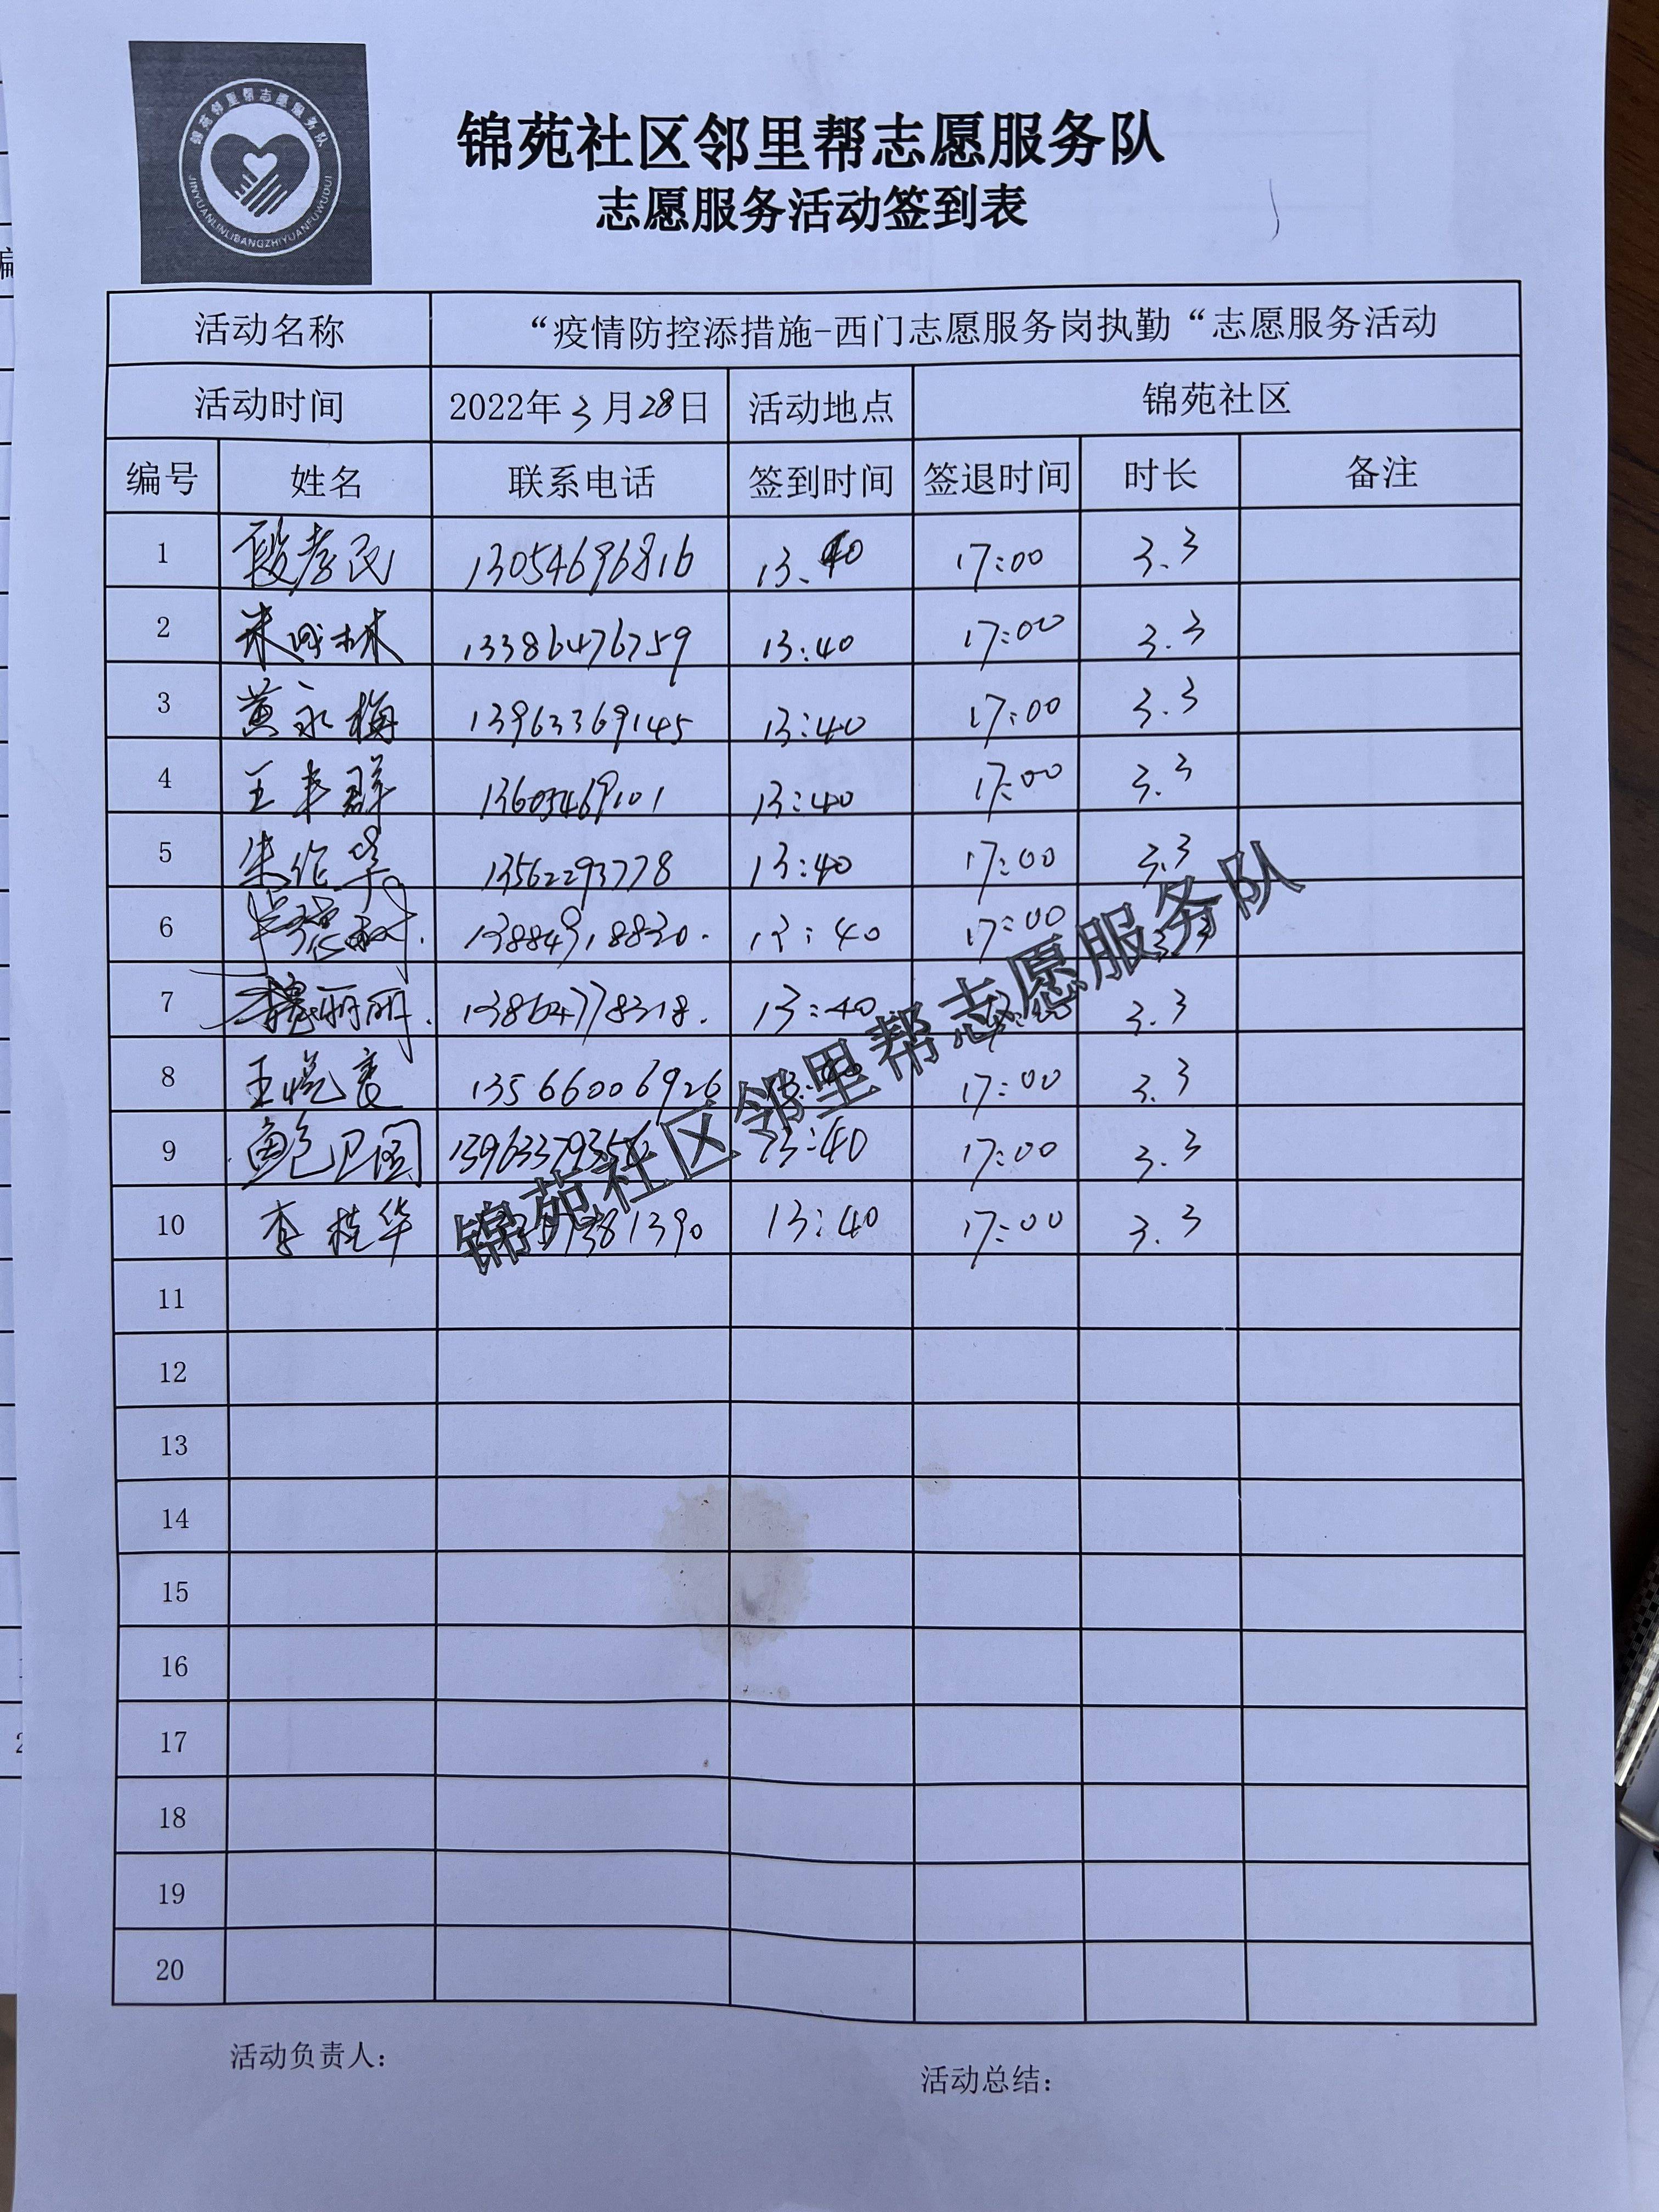 锦苑邻里帮志愿服务队
JINYUANLINLIBANGZHIYUANFUWUDUI
锦苑社区邻里帮志愿服务队
志愿服务活动签到表
活动名称 “疫情防控添措施-西门志愿服务岗执勤“志愿服务活动
活动时间 2022年3月28日 活动地点 锦苑社区
编号 姓名 联系电话 签到时间 签退时间 时长 备注
1 段孝民 13054696816 13.40 17:00 3.3
2 13386476759 13:40 17:00 3.3
3 黄永梅 13963369145 13:40 17:00 3.3
4 13:40 17:00 3.3
5 朱作华 13562293778 13:40 17:00 3.3
6 13884918830. 13:40 17:00 3.3
7 穆丽丽. 13864778318. 13:40 3.3
8 王悦良 13566006926 17:00 3.3
9 鲍卫国 13:40 17:00 3.3
10 李桂华 13:40 17:00 3.3
11
12
13
14
15
16
17
18
19
20
锦苑社区邻里帮志愿服务队
活动负责人：
活动总结：